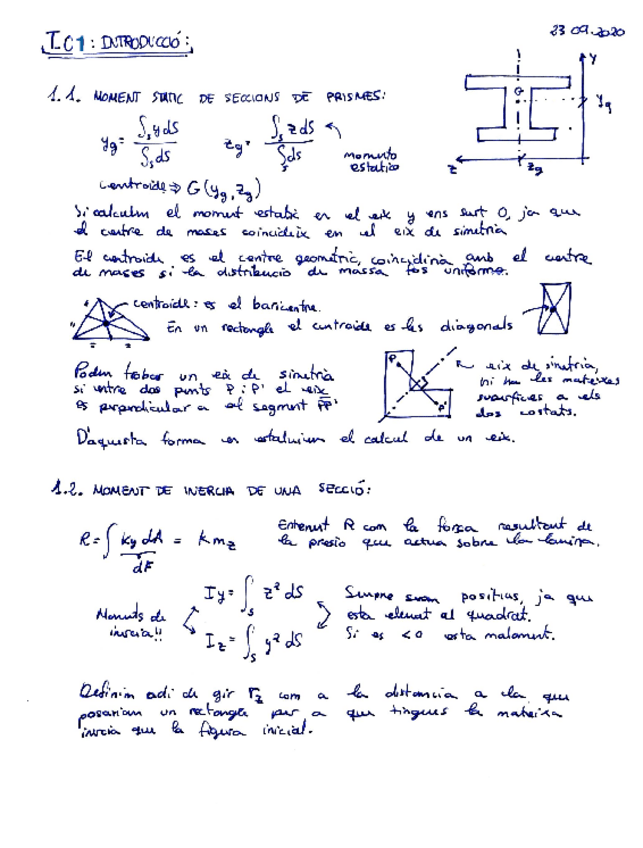 T.C1: INTRODUCCIÓ:
23 09.2020
1.1. MOMENT STATIC DE SECCIONS DE PRISMES:
y_g = ∫_S y dS / ∫_S dS   z_g = ∫_S z dS / ∫_S dS
momento estatico
centroide ⇒ G(y_g, z_g)
Y
G
y_g
z
z_g
Si calculm el moment estatic en el eix y ens surt 0, ja que
el centre de mases coincideix en el eix de simetria
El centroide es el centre geometric, coincidiria amb el centre
de mases si la distribucio de massa fos uniforme.
centroide: es el baricentre.
En un rectangle el centroide es les diagonals
Podem trobar un eix de simetria
si entre dos punts P i P' el eix
es perpendicular a el segment PP'
P
P'
eix de simetria,
hi ha les mateixes
superficies a els
dos costats.
D'aquesta forma en estalviem el calcul de un eix.
1.2. MOMENT DE INERCIA DE UNA SECCIÓ:
R = ∫ Ky dA = K m_z
dF
Entenent R com la força resultant de
la presio que actua sobre la lamina.
Moments de
inercia!!
I_y = ∫_S z² dS
I_z = ∫_S y² dS
Sempre seran positius, ja que
esta elevat al quadrat.
Si es <0 esta malament.
Definim adi de gir r_z com a la distancia a la que
posariam un rectangle per a que tingues la mateixa
inercia que la figura inicial.